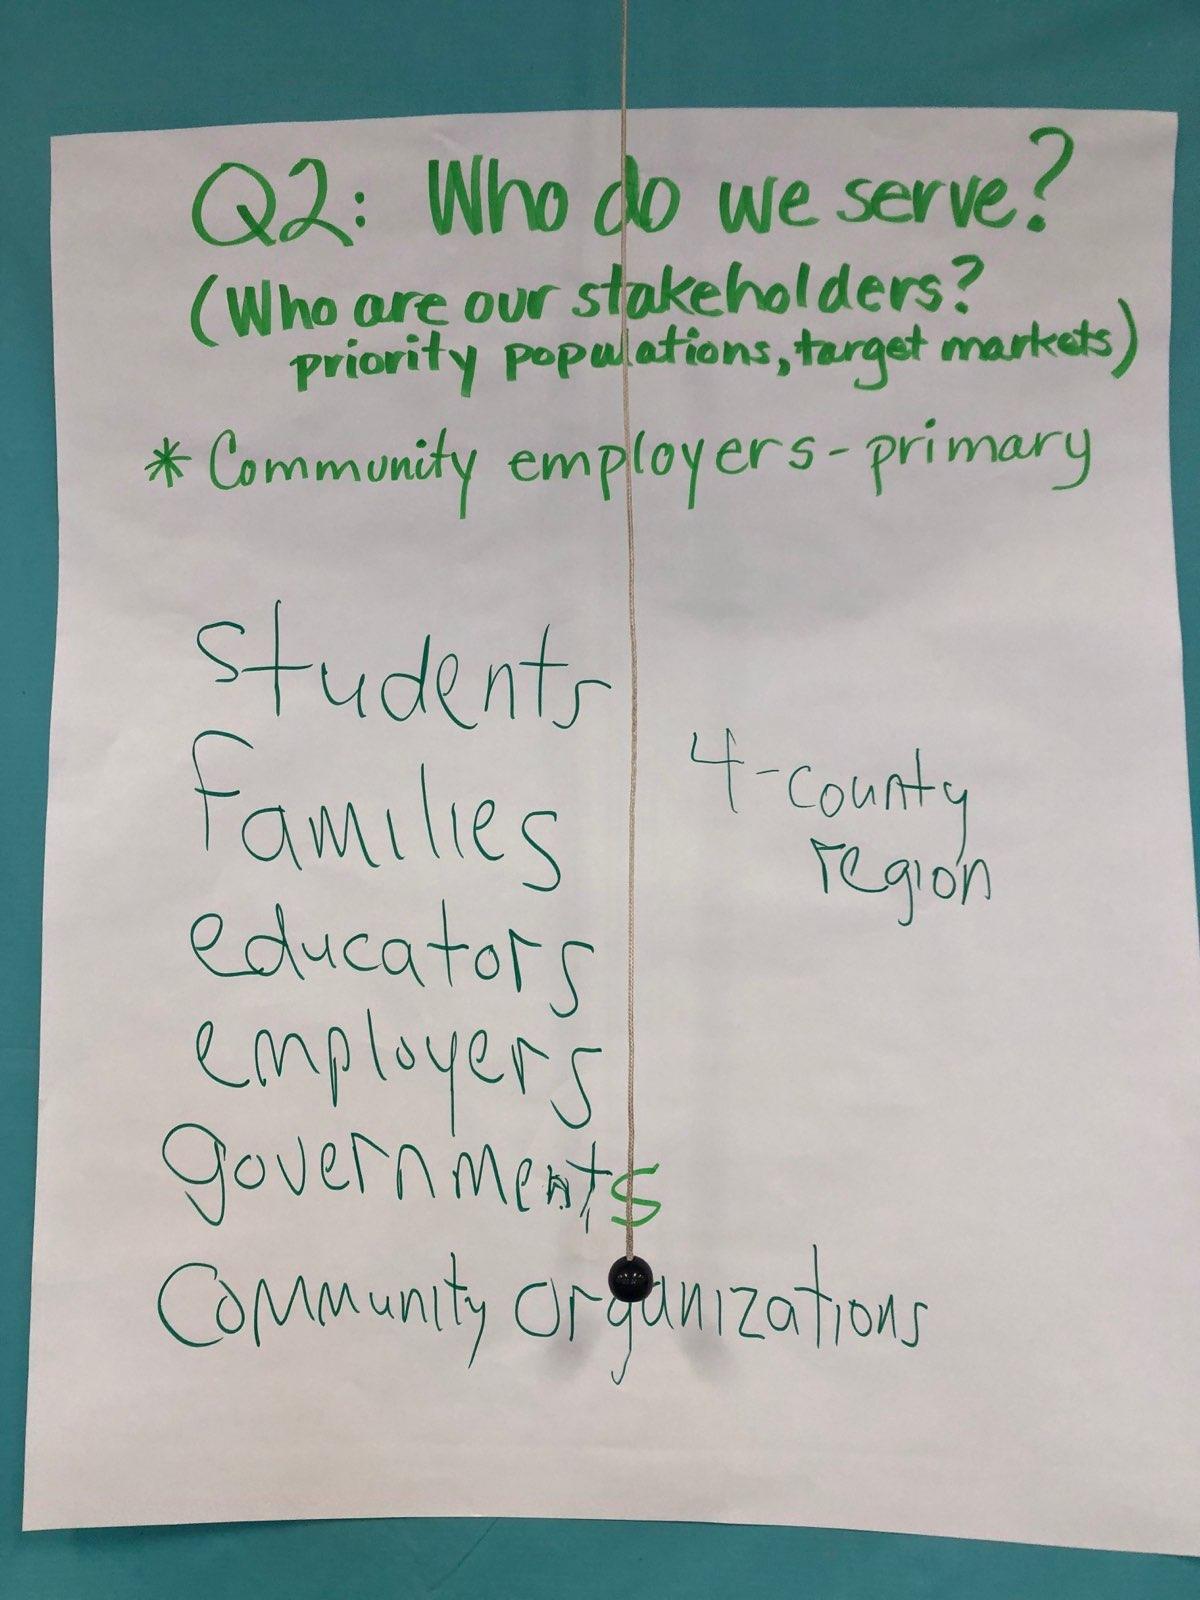 Q2: Who do we serve?
(Who are our stakeholders?
priority populations, target markets)
* Community employers - primary
students
families
4-county
region
educators
employers
governments
Community organizations